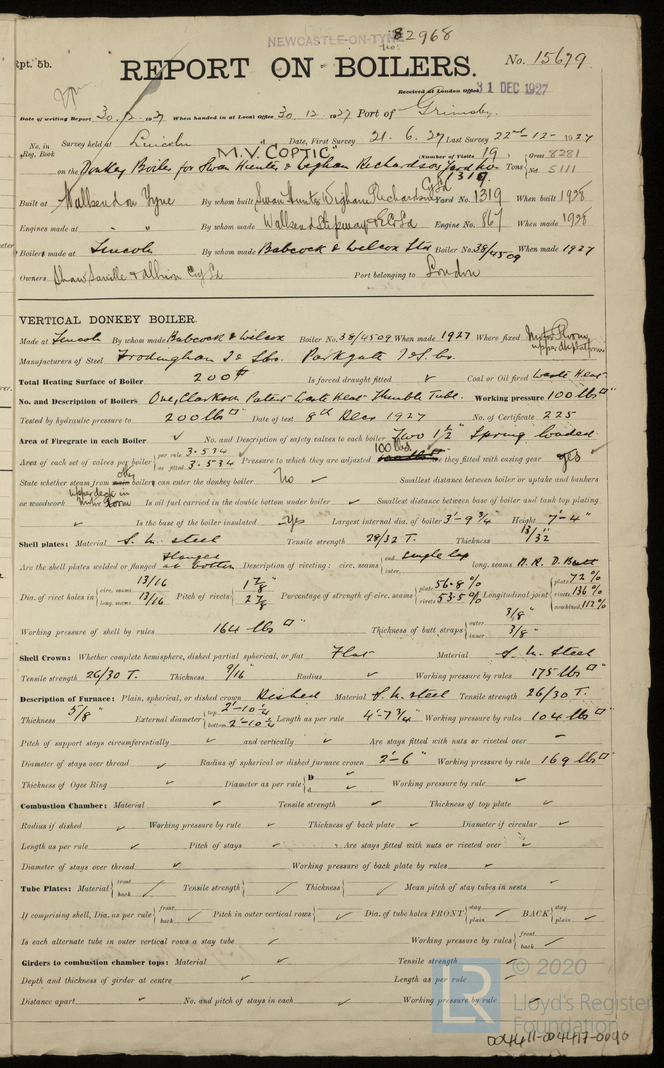 NEWCASTLE-ON-TYNE
No: 82968
Rpt. 5b.
REPORT ON BOILERS.
No. 15679
Received at London Office 31 DEC 1927
Date of writing Report 30.12.1927 When handed in at Local Office 30.12.1927 Port of Grimsby.
No. in Reg. Book Survey held at Lincoln Date, First Survey 21.6.27 Last Survey 22nd-12-1927
M.V. COPTIC (Number of Visits 19) Gross 8281
on the Donkey Boiler for Swan Hunter & Wigham Richardson Yard No 1319. Tons Net 5111
Built at Wallsend on Tyne By whom built Swan Hunter, Wigham Richardson Cy Ld Yard No. 1319 When built 1928
Engines made at " " By whom made Wallsend Slipway & E Co Ld Engine No. 867 When made 1928
Boilers made at Lincoln By whom made Babcock & Wilcox Ltd Boiler No. 38/4509 When made 1927
Owners Shaw Saville & Albion Coy Ld Port belonging to London
VERTICAL DONKEY BOILER.
Made at Lincoln By whom made Babcock & Wilcox Boiler No. 38/4509 When made 1927 Where fixed Motor Room upper deck platform
Manufacturers of Steel Frodingham I & S Co. Parkgate I & S. Co.
Total Heating Surface of Boiler 200 □' Is forced draught fitted ✓ Coal or Oil fired Waste Heat
No. and Description of Boilers One, Clarkson Patent Waste Heat Thimble Tube. Working pressure 100 lbs □"
Tested by hydraulic pressure to 200 lbs □" Date of test 8th Decr 1927 No. of Certificate 225
Area of Firegrate in each Boiler ✓ No. and Description of safety valves to each boiler Two 1½" Spring loaded
Area of each set of valves per boiler { per rule 3.514 as fitted 3.534 Pressure to which they are adjusted 100 lbs Are they fitted with easing gear yes
State whether steam from main boilers can enter the donkey boiler No Smallest distance between boiler or uptake and bunkers
or woodwork upper deck in Motor Room Is oil fuel carried in the double bottom under boiler ✓ Smallest distance between base of boiler and tank top plating
✓ Is the base of the boiler insulated Yes Largest internal dia. of boiler 3'-9¾" Height 7'-4"
Shell plates: Material S. M. steel Tensile strength 28/32 T. Thickness 13/32
Are the shell plates welded or flanged flanged at bottom Description of riveting: circ. seams { end single lap inter. long. seams D. R. D. Butt
Dia. of rivet holes in { circ. seams 13/16 long. seams 13/16 Pitch of rivets { 1⅞" 2⅞" Percentage of strength of circ. seams { plate 56.8% rivets 53.5% Longitudinal joint { plate 72% rivets 136% combined 112%
Working pressure of shell by rules 164 lbs □" Thickness of butt straps { outer 3/8" inner 3/8"
Shell Crown: Whether complete hemisphere, dished partial spherical, or flat Flat Material S. M. Steel
Tensile strength 26/30 T. Thickness 9/16" Radius ✓ Working pressure by rules 175 lbs □"
Description of Furnace: Plain, spherical, or dished crown Dished Material S. M. steel Tensile strength 26/30 T.
Thickness 5/8" External diameter { top 2'-10¼ bottom 2'-10¼ Length as per rule 4'-7¾" Working pressure by rules 104 lbs □"
Pitch of support stays circumferentially ✓ and vertically ✓ Are stays fitted with nuts or riveted over ✓
Diameter of stays over thread ✓ Radius of spherical or dished furnace crown 2'-6" Working pressure by rule 169 lbs □"
Thickness of Ogee Ring ✓ Diameter as per rule { D ✓ d ✓ Working pressure by rule ✓
Combustion Chamber: Material ✓ Tensile strength ✓ Thickness of top plate ✓
Radius if dished ✓ Working pressure by rule ✓ Thickness of back plate ✓ Diameter if circular ✓
Length as per rule ✓ Pitch of stays ✓ Are stays fitted with nuts or riveted over ✓
Diameter of stays over thread ✓ Working pressure of back plate by rules ✓
Tube Plates: Material { front back ✓ Tensile strength { ✓ Thickness { ✓ Mean pitch of stay tubes in nests ✓
If comprising shell, Dia. as per rule { front back ✓ Pitch in outer vertical rows { ✓ Dia. of tube holes FRONT { stay plain ✓ BACK { stay plain ✓
Is each alternate tube in outer vertical rows a stay tube ✓ Working pressure by rules { front back ✓
Girders to combustion chamber tops: Material ✓ Tensile strength ✓
Depth and thickness of girder at centre ✓ Length as per rule ✓
Distance apart ✓ No. and pitch of stays in each ✓ Working pressure by rule ✓
© 2020
LR Lloyd's Register
Foundation
004411-004417-0090